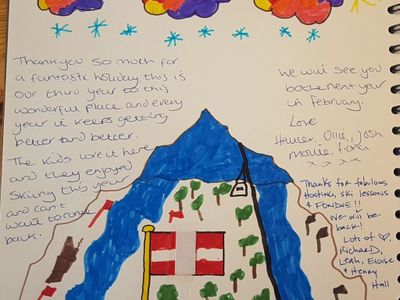 Thankyou so much for
a fantastic holiday this is
our third year to this
wonderful place and every
year it keeps getting
better and better.
The kids love it here
and they enjoyed
Skiing this year
and can't
wait to come
back.
We will see you
both next year
in february.
Love
Ollie, Josh
x x x x
Thanks for fabulous
hosting, ski lessons
& FONDUE!!
We will be
back!
Lots of ♡,
Richard,
Leah, Eloise
& Henry
Hall